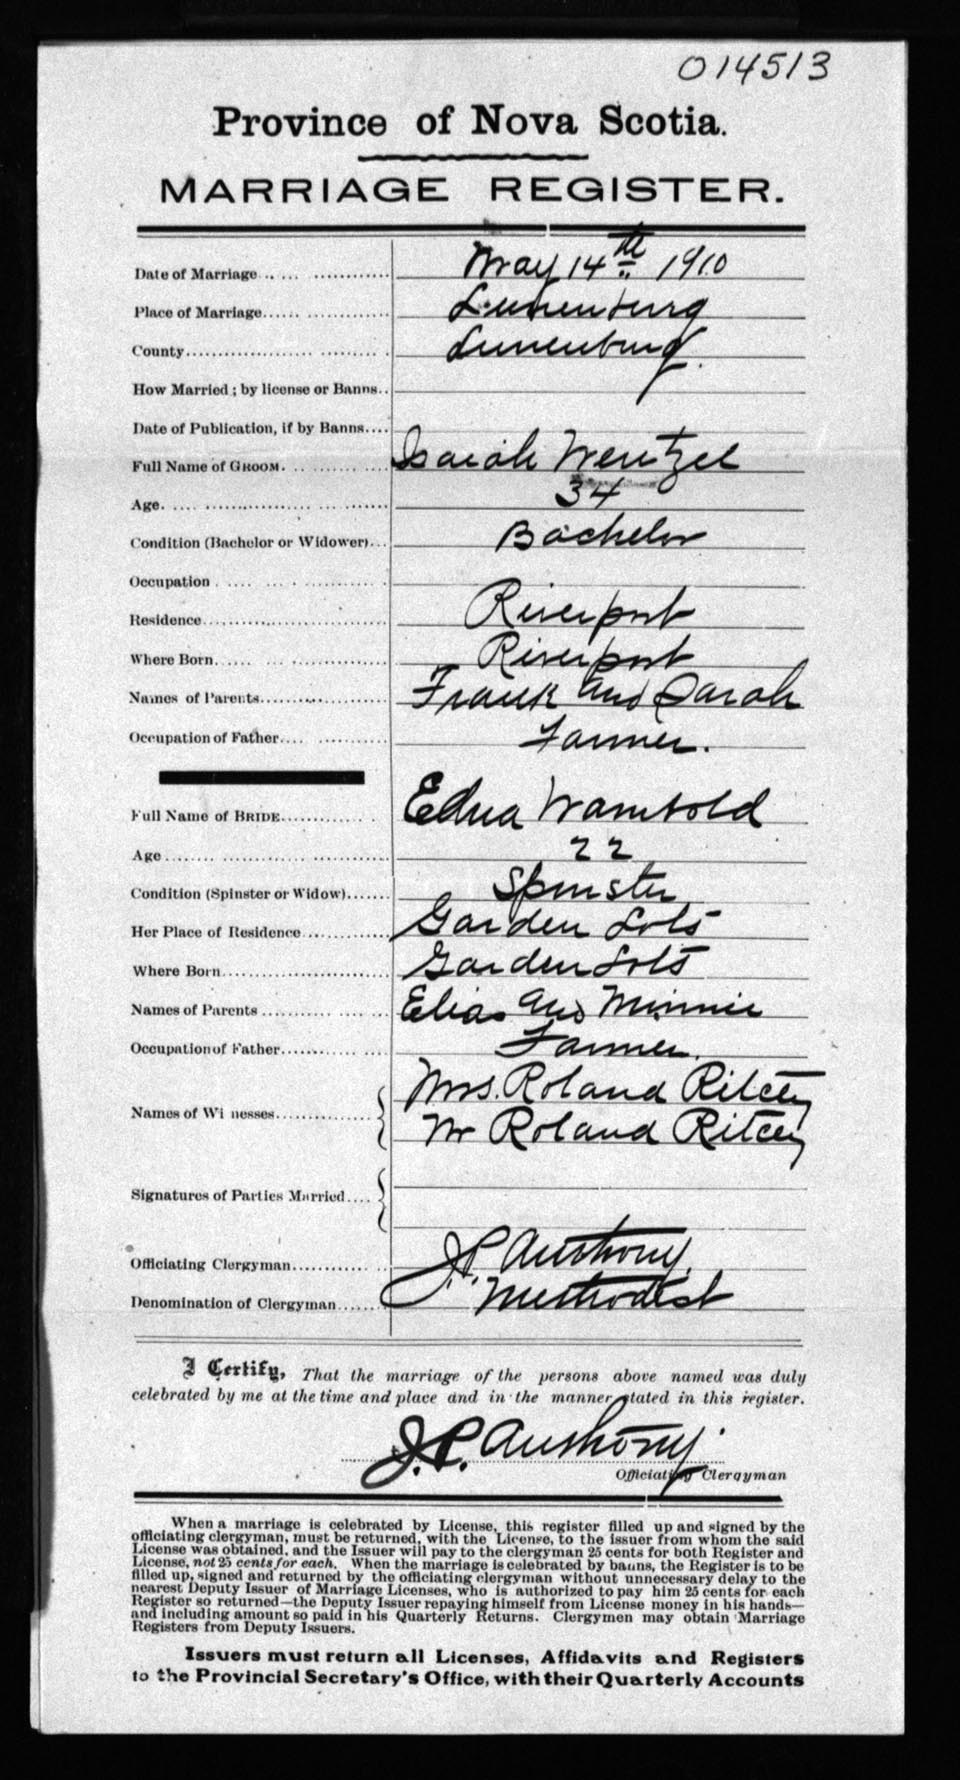 014513
Province of Nova Scotia.
MARRIAGE REGISTER.
Date of Marriage May 14th 1910
Place of Marriage Lunenburg
County Lunenburg.
How Married; by license or Banns
Date of Publication, if by Banns
Full Name of GROOM Isaiah Wentzel
Age 34
Condition (Bachelor or Widower) Bachelor
Occupation
Residence Riverport
Where Born Riverport
Names of Parents Frank and Sarah
Occupation of Father Farmer.
Full Name of BRIDE Edna Wambold
Age 22
Condition (Spinster or Widow) Spinster
Her Place of Residence Garden Lots
Where Born Garden Lots
Names of Parents Elias and Minnie
Occupation of Father Farmer.
Names of Wi nesses Mrs. Roland Ritcey
Mr Roland Ritcey
Signatures of Parties Married
Officiating Clergyman J.P. Anthony.
Denomination of Clergyman Methodist
I Certify, That the marriage of the persons above named was duly
celebrated by me at the time and place and in the manner stated in this register.
J.P. Anthony.
Officiating Clergyman
When a marriage is celebrated by License, this register filled up and signed by the
officiating clergyman, must be returned, with the License, to the issuer from whom the said
License was obtained, and the Issuer will pay to the clergyman 25 cents for both Register and
License, not 25 cents for each. When the marriage is celebrated by banns, the Register is to be
filled up, signed and returned by the officiating clergyman without unnecessary delay to the
nearest Deputy Issuer of Marriage Licenses, who is authorized to pay him 25 cents for each
Register so returned—the Deputy Issuer repaying himself from License money in his hands—
and including amount so paid in his Quarterly Returns. Clergymen may obtain Marriage
Registers from Deputy Issuers.
Issuers must return all Licenses, Affidavits and Registers
to the Provincial Secretary's Office, with their Quarterly Accounts